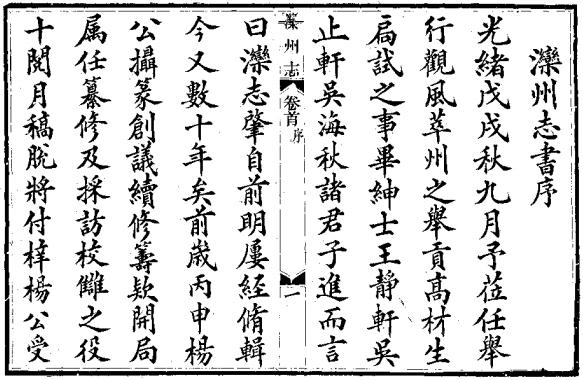 灤州志書序
光緒戊戌秋九月予莅任舉
行觀風萃州之舉貢高材生
扃試之事畢紳士王靜軒吳
止軒吳海秋諸君子進而言
灤州志
卷首
序
一
曰灤志肇自前明屢經脩輯
今又數十年矣前歲丙申楊
公攝篆創議續修籌欵開局
属任纂修及採訪校讎之役
十閱月稿脫將付梓楊公受